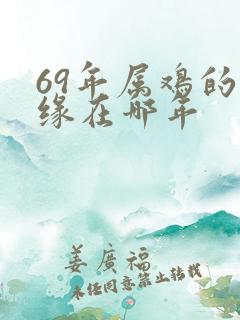 69年属鸡的
缘在哪年
姜廣福
未经同意禁止转载